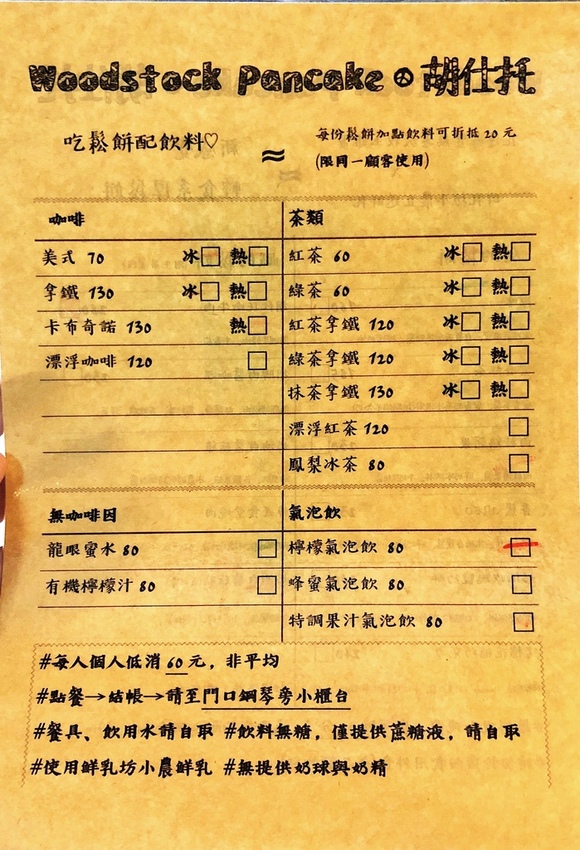 Woodstock Pancake 胡仕托
吃鬆餅配飲料♡
每份鬆餅加點飲料可折抵 20 元
(限同一顧客使用)
咖啡
美式 70 冰□ 熱□
拿鐵 130 冰□ 熱□
卡布奇諾 130 熱□
漂浮咖啡 120 □
茶類
紅茶 60 冰□ 熱□
綠茶 60 冰□ 熱□
紅茶拿鐵 120 冰□ 熱□
綠茶拿鐵 120 冰□ 熱□
抹茶拿鐵 130 冰□ 熱□
漂浮紅茶 120 □
鳳梨冰茶 80 □
無咖啡因
龍眼蜜水 80 □
有機檸檬汁 80 □
氣泡飲
檸檬氣泡飲 80 □
蜂蜜氣泡飲 80 □
特調果汁氣泡飲 80 □
#每人個人低消 60 元，非平均
#點餐→結帳→請至門口鋼琴旁小櫃台
#餐具、飲用水請自取 #飲料無糖，僅提供蔗糖液，請自取
#使用鮮乳坊小農鮮乳 #無提供奶球與奶精